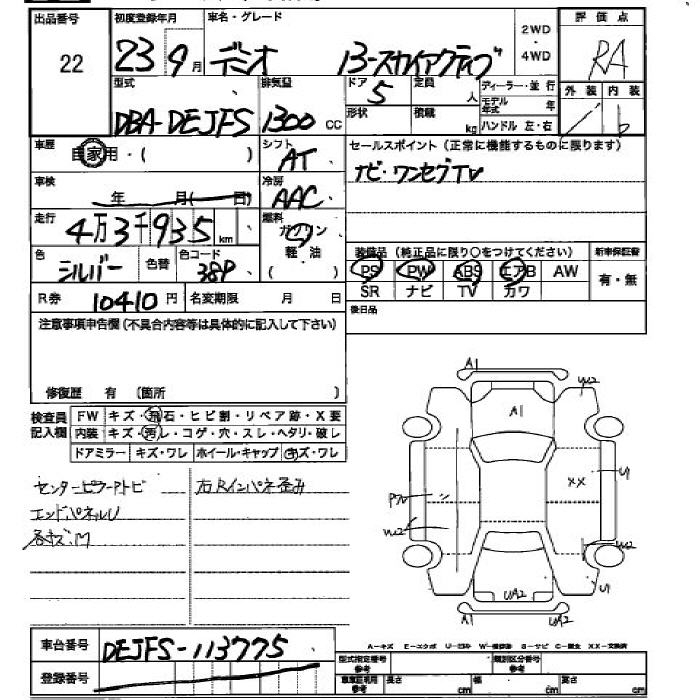 出品番号 22
初度登録年月 23 9月
車名・グレード デミオ 13-スカイアクティブ
2WD・4WD
評価点 RA
型式 DBA-DEJFS
排気量 1300 CC
ドア 5
定員 人
形状
積載 kg
ディーラー・並行
モデル年式 年
ハンドル 左・右
外装 内装 b
車歴 自家用・( )
シフト AT
セールスポイント(正常に機能するものに限ります)
ナビ・ワンセグTV
車検 年 月( 日)
冷房 AAC
走行 4万3千935km
燃料 ガソリン 軽・油 ( )
色 シルバー 色替 色コード 38P
装備品(純正品に限り○をつけてください) 新車保証書
PS PW ABS エアB AW 有・無
SR ナビ TV カワ
R券 10410円 名変期限 月 日
後日品
注意事項申告欄(不具合内容等は具体的に記入して下さい)
修復歴 有 (箇所 )
検査員記入欄
FW キズ・飛石・ヒビ割・リペア跡・X要
内装 キズ・汚レ・コゲ・穴・スレ・ヘタリ・破レ
ドアミラー キズ・ワレ ホイール・キャップ キズ・ワレ
センターピラーPトビ
右Rインパネ歪み
エンドパネルU
各キズM
A1
W2
A1
U1
XX
P
W2
W2
U1
UA2
A1
UA2
車台番号 DEJFS-113775
登録番号
A-キズ E-エクボ U-凹み W-補修跡 S-サビ C-腐食 XX-交換済
型式指定番号 参考
類別区分番号 参考
車庫証明用 参考 長さ cm 幅 cm 高さ cm